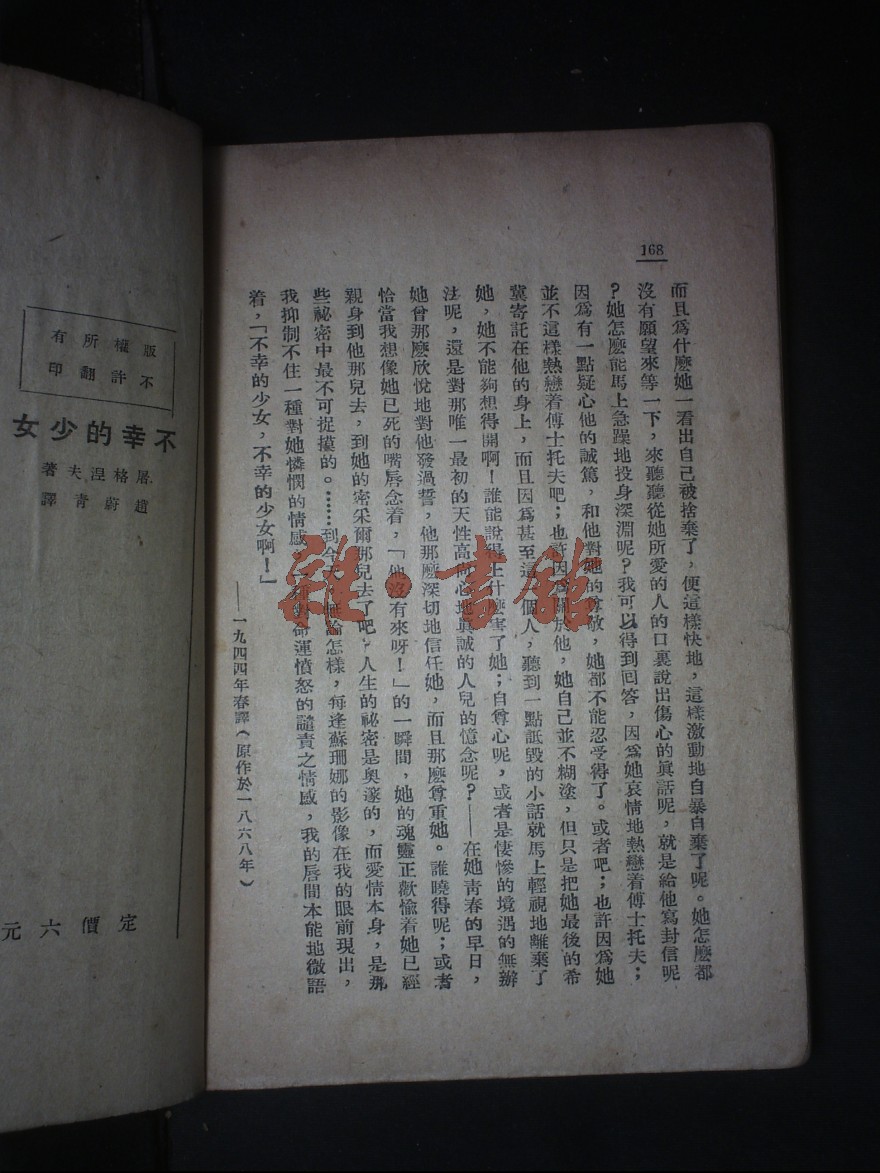 168
而且爲什麽她一看出自己被捨棄了，便這樣快地，這樣激動地自暴自棄了呢。她怎麽都
沒有願望來等一下，來聽聽從她所愛的人的口裏說出傷心的眞話呢，就是給他寫封信呢
？她怎麽能馬上急躁地投身深淵呢？我可以得到回答，因爲她哀情地熱戀着傅士托夫；
因爲有一點疑心他的誠篤，和他對她的尊敬，她都不能忍受得了。或者吧；也許因爲她
並不這樣熱戀着傅士托夫吧；也許因爲關於他，她自己並不糊塗，但只是把她最後的希
冀寄託在他的身上，而且因爲甚至這一個人，聽到一點詆毀的小話就馬上輕視地離棄了
她，她不能夠想得開啊！誰能說得上什麽害了她；自尊心呢，或者是悽慘的境遇的無辦
法呢，還是對那唯一最初的天性高尙心地眞誠的人兒的憶念呢？——在她靑春的早日，
她曾那麽欣悅地對他發過誓，他那麽深切地信任她，而且那麽尊重她。誰曉得呢；或者
恰當我想像她已死的嘴唇念着，「他沒有來呀！」的一瞬間，她的魂靈正歡愉着她已經
親身到他那兒去，到她的密采爾那兒去了吧，人生的祕密是奧邃的，而愛情本身，是那
些祕密中最不可捉摸的。……到今天，無論怎樣，每逢蘇珊娜的影像在我的眼前現出，
我抑制不住一種對她憐憫的情感，一種對命運憤怒的譴責之情感，我的唇間本能地微語
着，「不幸的少女，不幸的少女啊！」
——一九四四年春譯（原作於一八六八年）
版權所有
不許翻印
不幸的少女
屠格涅夫著
趙蔚青譯
定價六元
雜·書館